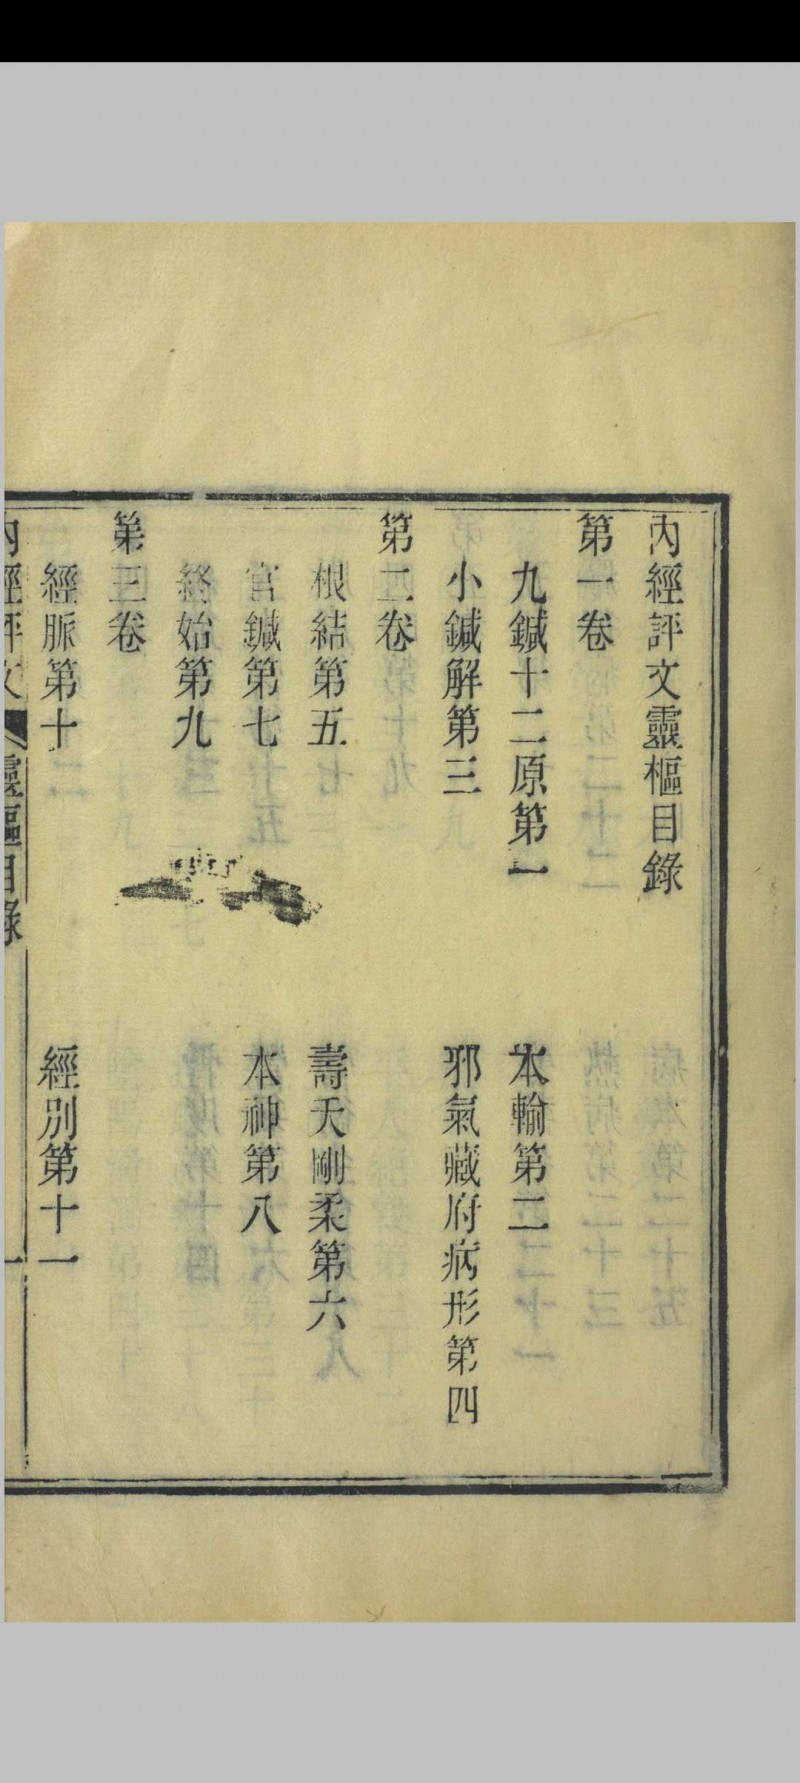 內經評文靈樞目錄
第一卷
九鍼十二原第一
本輸第二
小鍼解第三
邪氣藏府病形第四
第二卷
根結第五
壽夭剛柔第六
官鍼第七
本神第八
終始第九
第三卷
經脈第十
經別第十一
內經評文
靈樞目錄
一